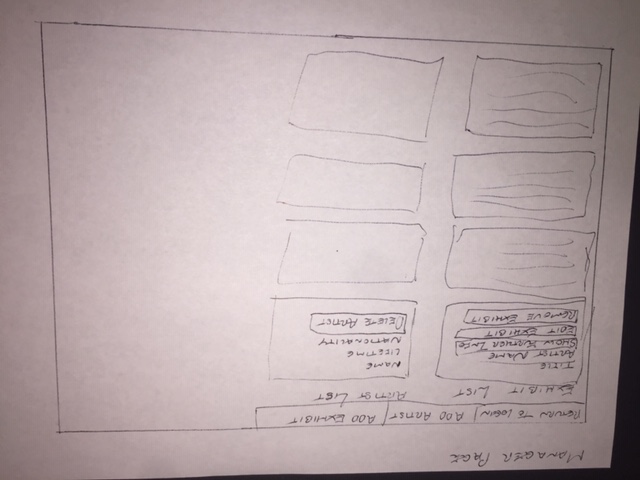 MANAGER PAGE
RETURN TO LOGIN ADD ARTIST ADD EXHIBIT
EXHIBIT LIST ARTIST LIST
TITLE
ARTIST NAME
SHOW FURTHER INFO
EDIT EXHIBIT
REMOVE EXHIBIT
NAME
LIFETIME
NATIONALITY
DELETE ARTIST